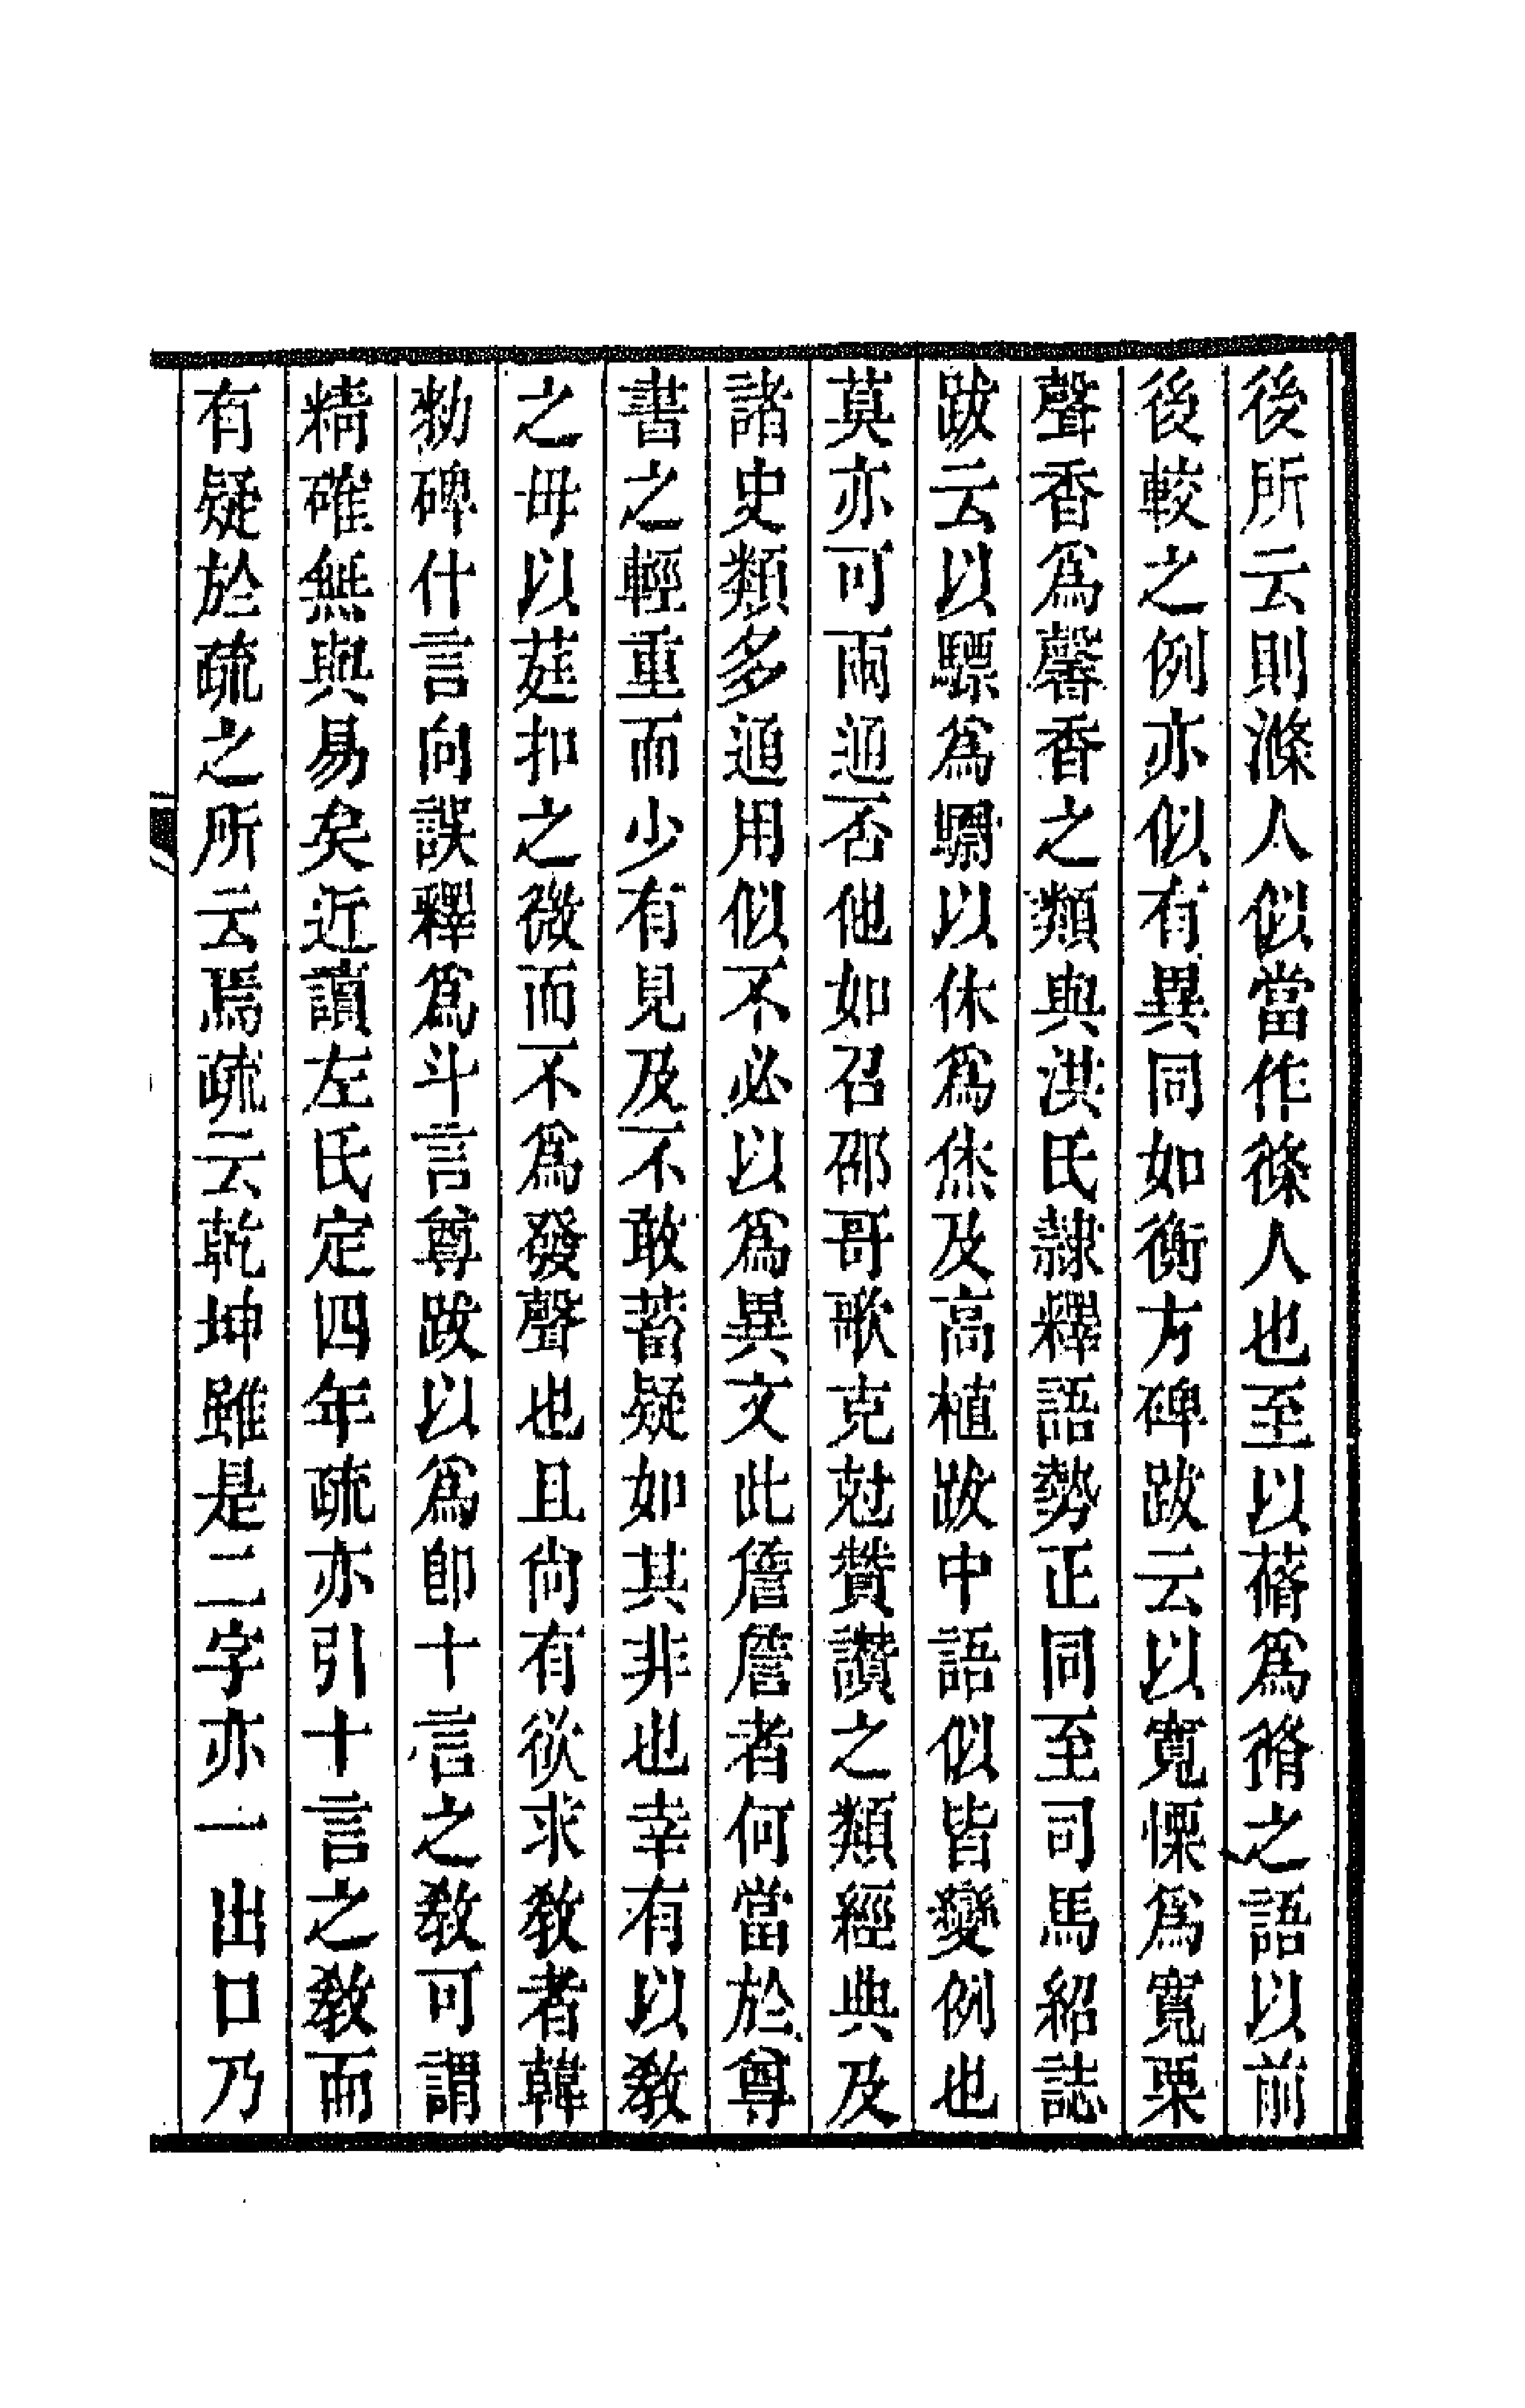 後所云則滌人似當作篠人也至以蓨爲脩之語以前
後較之例亦似有異同如衡方碑跋云以寬慄爲寬栗
聲香爲馨香之類與洪氏隷釋語勢正同至司馬紹誌
跋云以驃爲驫以休爲烋及高植跋中語似皆變例也
莫亦可兩通否他如召邵哥歌克尅贊讚之類經典及
諸史類多通用似不必以爲異文此詹詹者何當於尊
書之輕重而少有見及不敢蓄疑如其非也幸有以教
之毋以莛扣之微而不爲發聲也且尙有欲求教者韓
勑碑什言向誤釋爲斗言尊跋以爲卽十言之教可謂
精確無與易矣近讀左氏定四年疏亦引十言之教而
有疑於疏之所云焉疏云乾坤雖是二字亦一出口乃